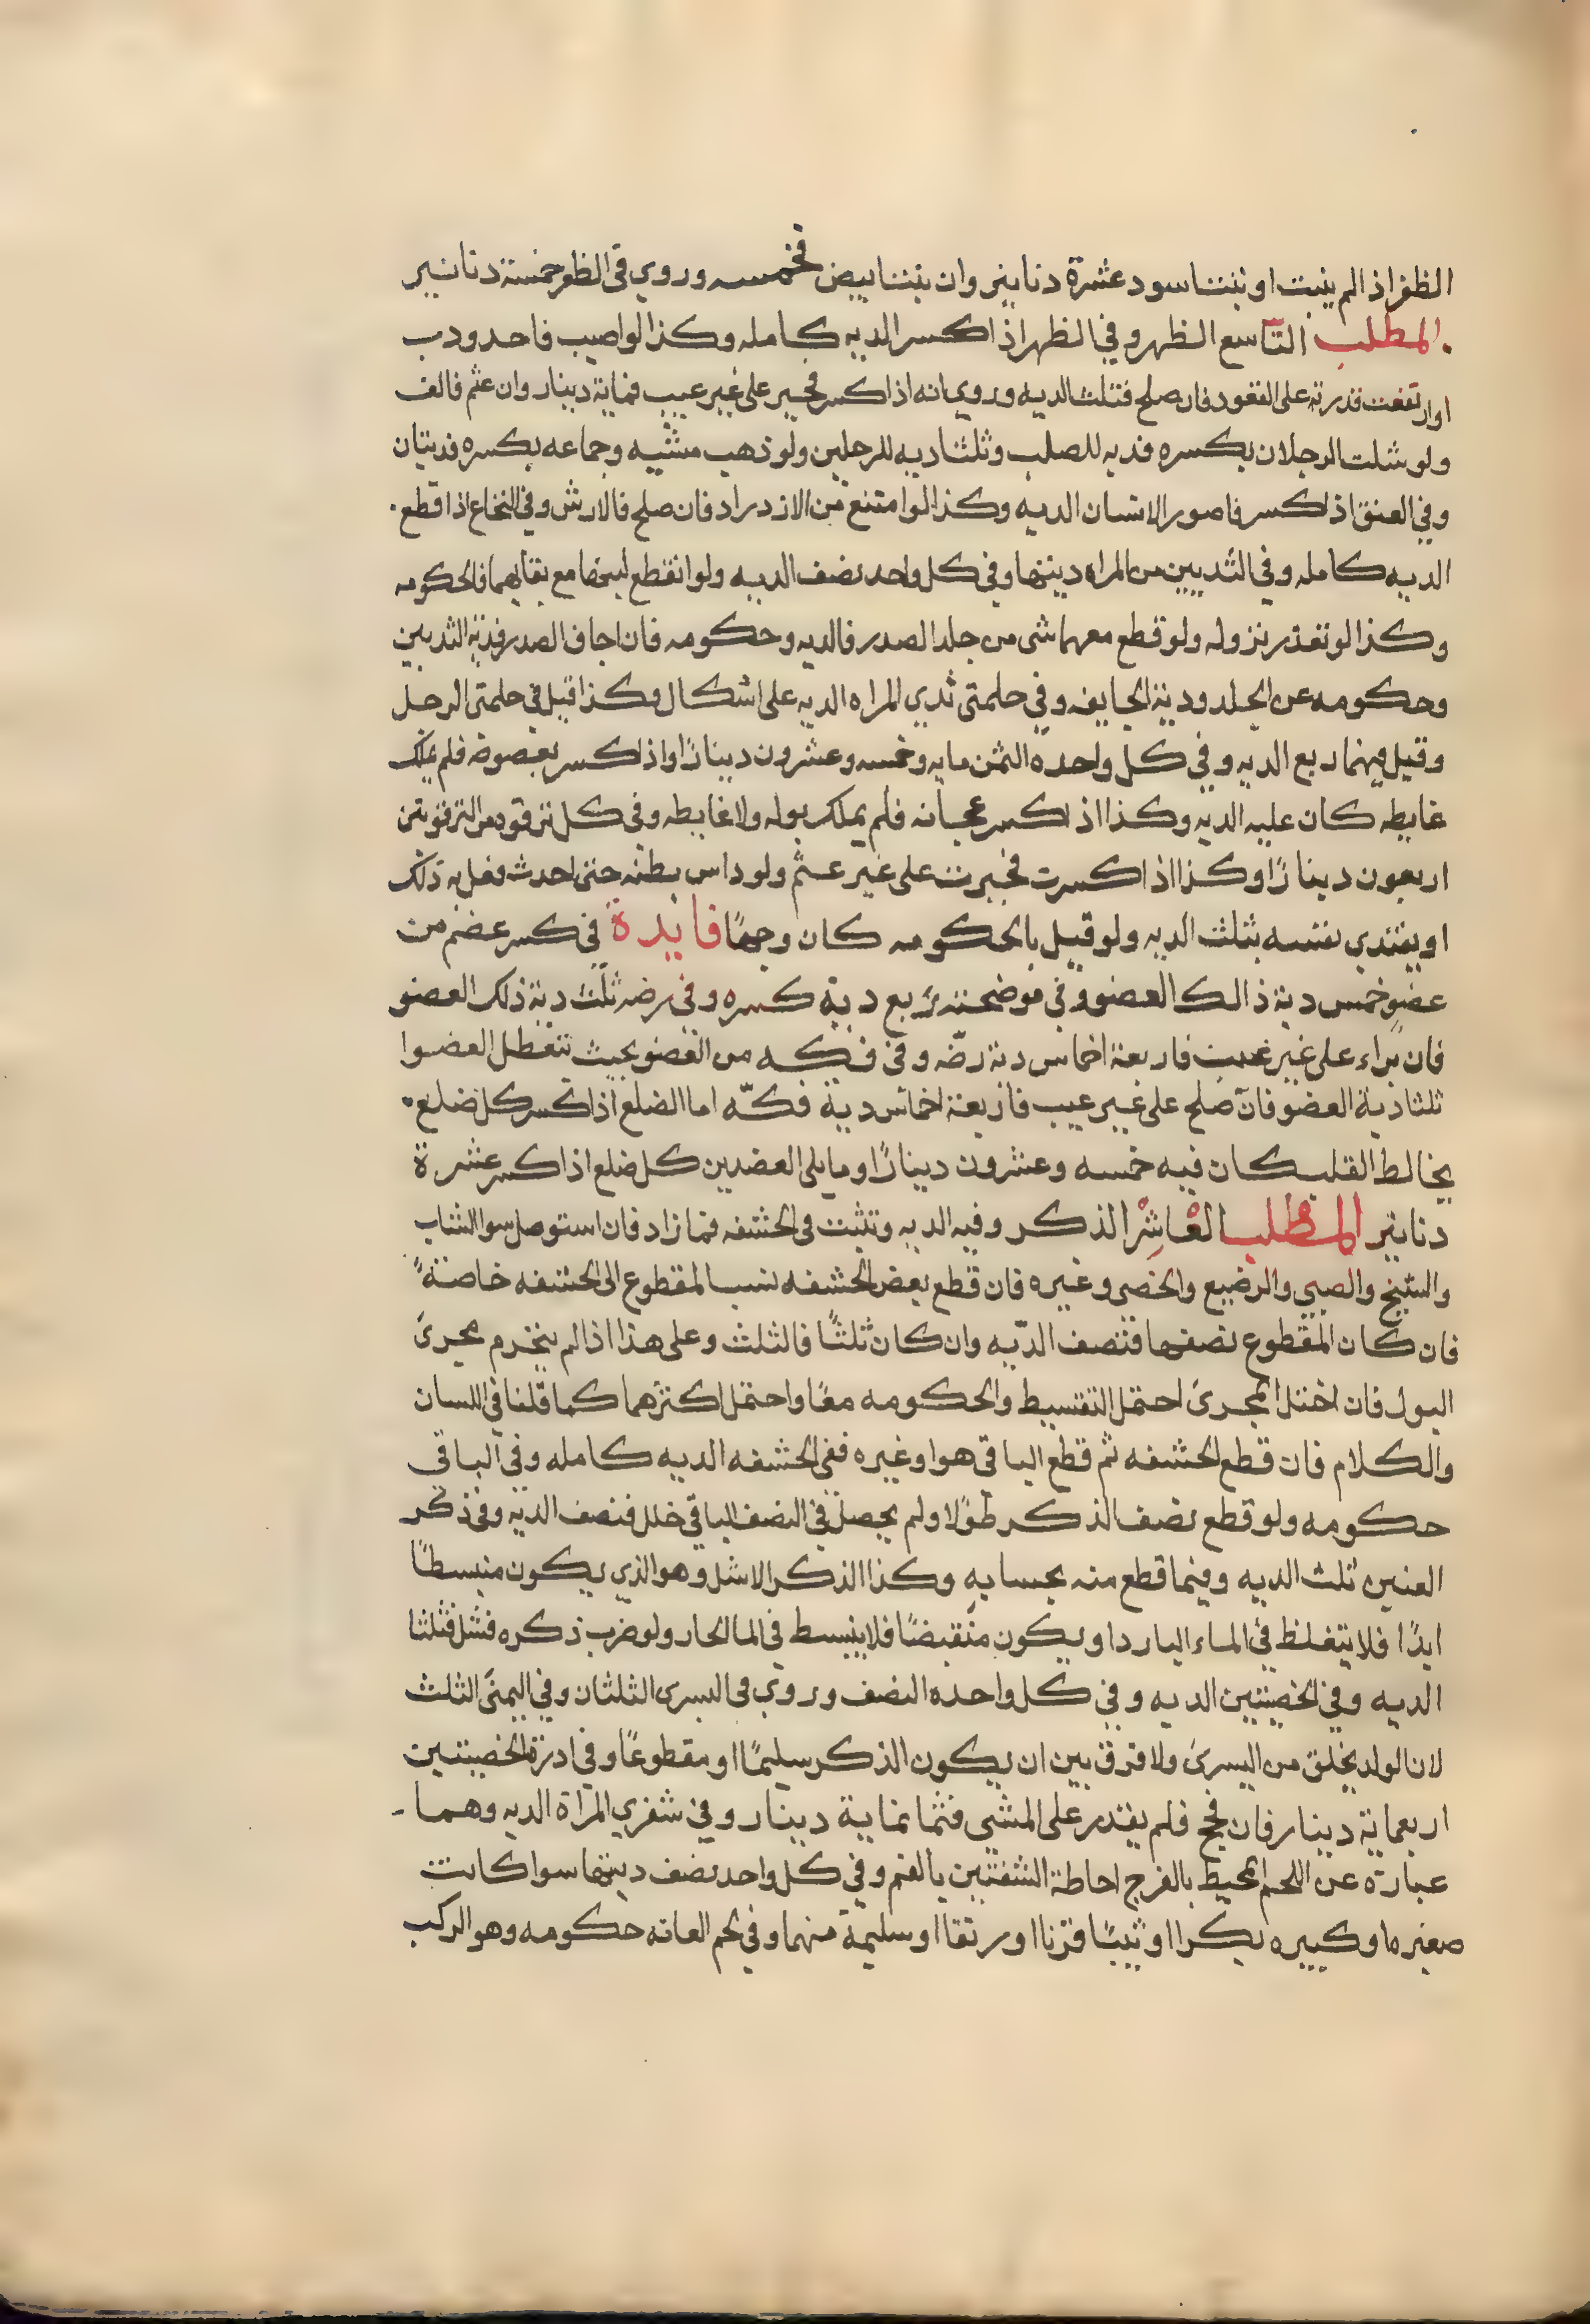 الظفر اذا لم ينبت او نبت اسود عشرة دنانير وان نبت ابيض فخمسه وروي في الظفر خمسة دنانير
المطلب التاسع الظهر وفي الظهر اذا كسر الديه كامله وكذا لو اصيب فاحدودب
او ارتفعت قدرته على القعود فان صلح فثلث الديه وروي انه اذا كسر فجبر على غير عيب فماية دينار وان عثم فالف
ولو شلت الرجلان بكسره فديه للصلب وثلثا ديه للرجلين ولو ذهب مشيه وجماعه بكسره فديتان
وفي العنق اذا كسر فاصور الانسان الديه وكذا لو امتنع من الازدراد فان صلح فالارش وفي النخاع اذا قطع
الديه كامله وفي الثديين من المراه ديتها وفي كل واحد نصف الديه ولو انقطع لبنها مع بقايهما فالحكومه
وكذا لو تعذر نزوله ولو قطع معهما شى من جلد الصدر فالديه وحكومه فان اجاف الصدر فدية الثديين
وحكومه عن الجلد ودية الجايفه وفي حلمتى ثدي المراه الديه على اشكال وكذا قيل في حلمتى الرجل
وقيل فيهما ربع الديه وفي كل واحده الثمن مايه وخمسه وعشرون دينارًا واذا كسر بعصوصه فلم يملك
غايطه كان عليه الديه وكذا اذا كسر عجانه فلم يملك بوله ولا غايطه وفي كل ترقوه من الترقوتين
اربعون دينارًا وكذا اذا كسرت فجبرت على غير عثم ولو داس بطنه حتى احدث فعل به ذلك
او يفتدي نفسه بثلث الديه ولو قيل بالحكومه كان وجهًا فايدة في كسر عضم من
عضو خمس دية ذالك العضو وفي موضحته ربع دية كسره وفي رضه ثلث دية ذلك العضو
فان براء على غير عيب فاربعة اخماس دية رضّه وفي فكه من العضو بحيث تتعطل العضوا
ثلثا دية العضو فان صلح على غير عيب فاربعة اخماس دية فكّه اما الضلع اذا كسر كل ضلع
يخالط القلب كان فيه خمسه وعشرون دينارًا وما يلى العضدين كل ضلع اذا كسر عشرة
دنانير المطلب العاشر الذكر وفيه الديه وتثبت في الحشفه فما زاد فان استوصل سوا الشاب
والشيخ والصبي والرضيع والخصى وغيره فان قطع بعض الحشفه نسب المقطوع الى الحشفه خاصةً
فان كان المقطوع نصفها فنصف الدّيه وان كان ثلثًا فالثلث وعلى هذا اذا لم ينخرم مجرى
البول فان اختل المجرى احتمل التقسيط والحكومه معًا واحتمل اكثرهما كما قلنا في اللسان
والكلام فان قطع الحشفه ثم قطع الباقى هو او غيره ففى الحشفه الديه كامله وفي الباقى
حكومه ولو قطع نصف الذكر طولًا ولم يحصل في النصف الباقي خلل فنصف الديه وفي ذكر
العنين ثلث الديه وفيما قطع منه بحسابه وكذا الذكر الاشل وهو الذي يكون منبسطًا
ابدًا فلا يتغلظ في الماء البارد او يكون منقبضًا فلا ينبسط في الما الحار ولو ضرب ذكره فشل فثلثا
الديه وفي الخصيتين الديه وفي كل واحده النصف وروي في اليسرى الثلثان وفي اليمنى الثلث
لان الولد يخلق من اليسرى ولا فرق بين ان يكون الذكر سليمًا او مقطوعًا وفي ادرة الخصيتين
اربعماية دينار فان فحج فلم يقدر على المشى فثمانماية دينار وفي شفري المراة الديه وهما
عبارة عن اللحم المحيط بالفرج احاطة الشفتين بالفم وفي كل واحد نصف ديتها سوا كانت
صغيره او كبيره بكرا او ثيبًا قرنا او رتقا او سليمة منهما وفي لحم العانه حكومه وهو الركب